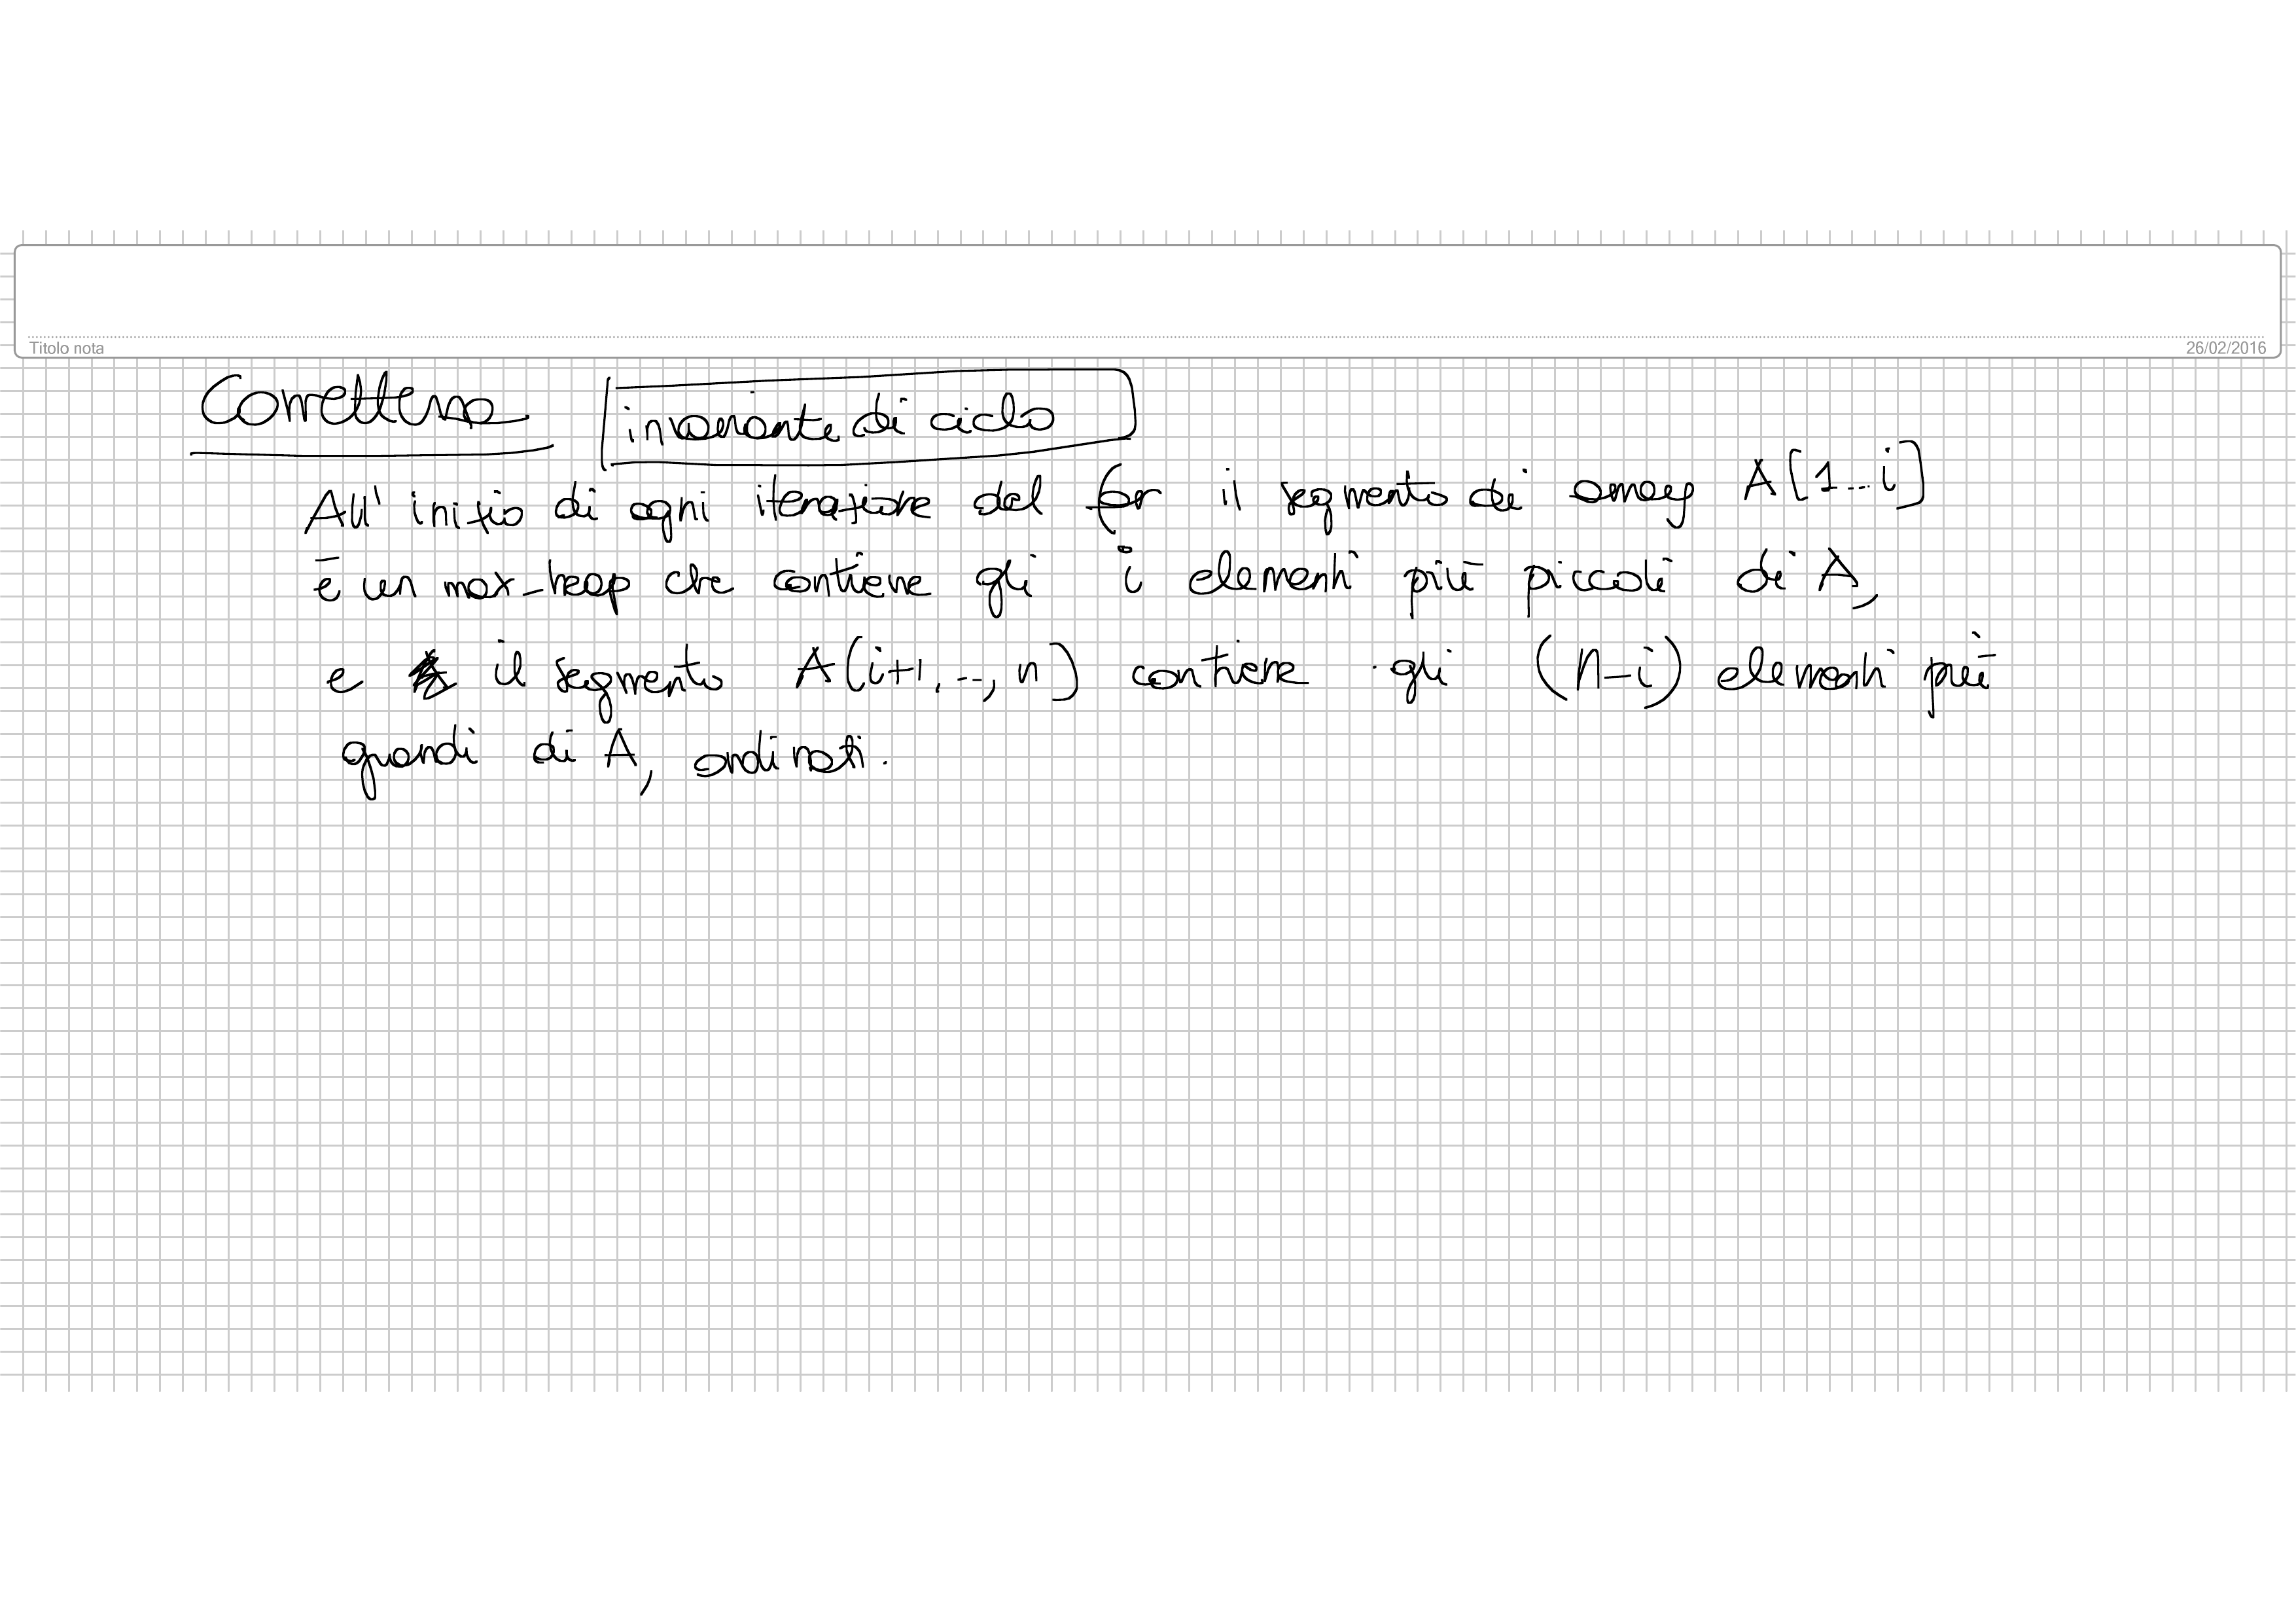 Titolo nota
26/02/2016
Correttezza invariante di ciclo
All' inizio di ogni iterazione del for il segmento di array A[1...i]
è un max-heap che contiene gli i elementi più piccoli di A,
e il segmento A(i+1, ..., n] contiene gli (n-i) elementi più
grandi di A, ordinati.